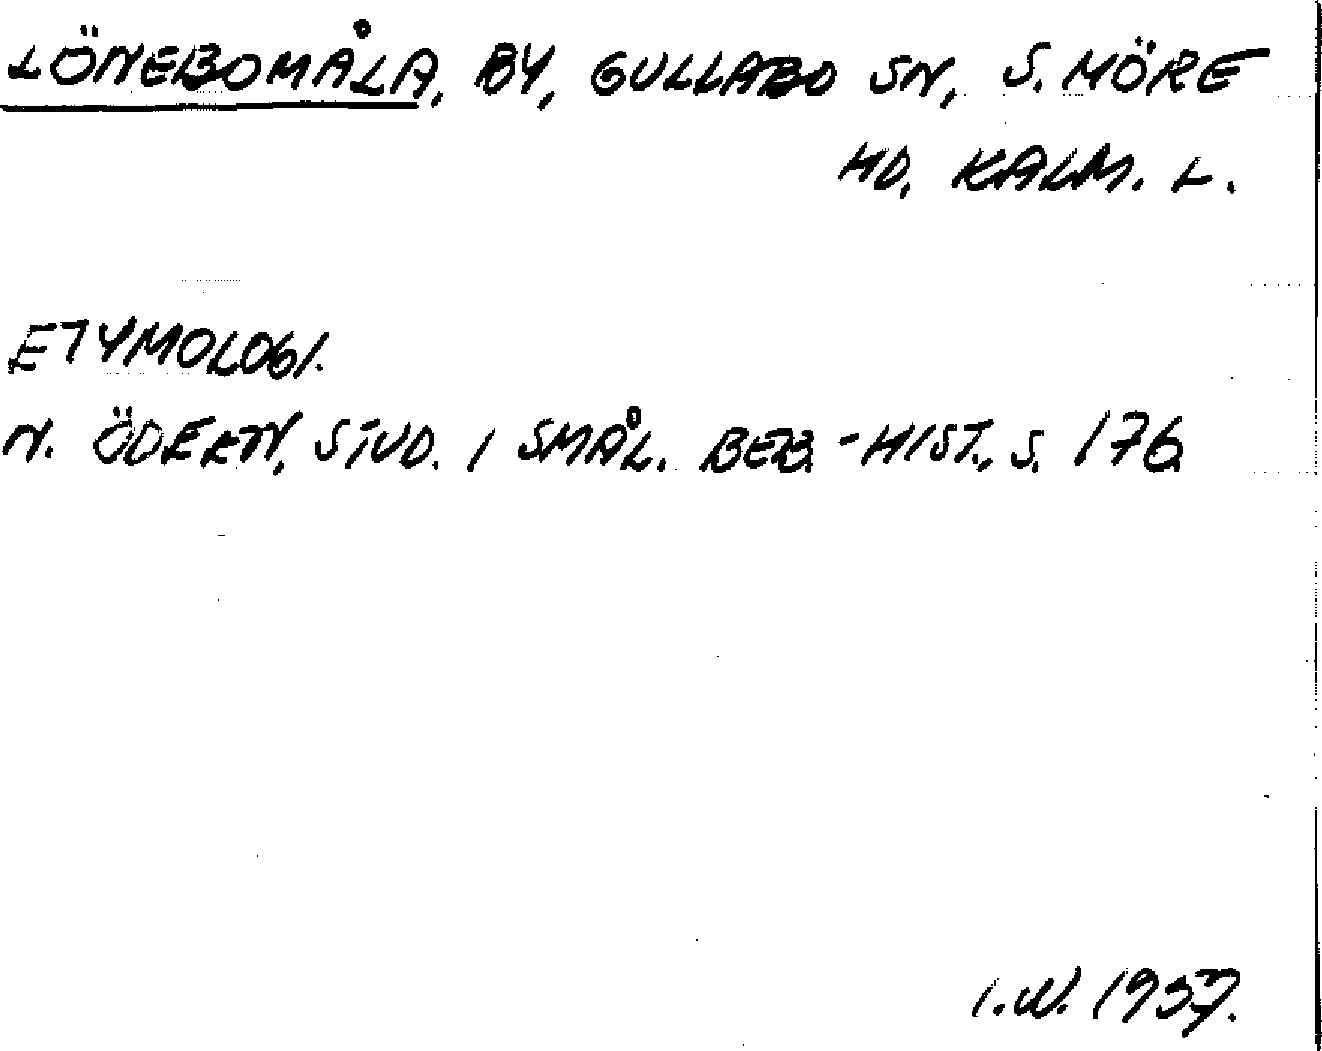 LÖNEBOMÅLA, BY, GULLABO SN, S. MÖRE
HD, KALM. L.
ETYMOLOGI.
N. ÖDEEN, STUD. I SMÅL. BEB.-HIST., S. 176
I.N. 1937.